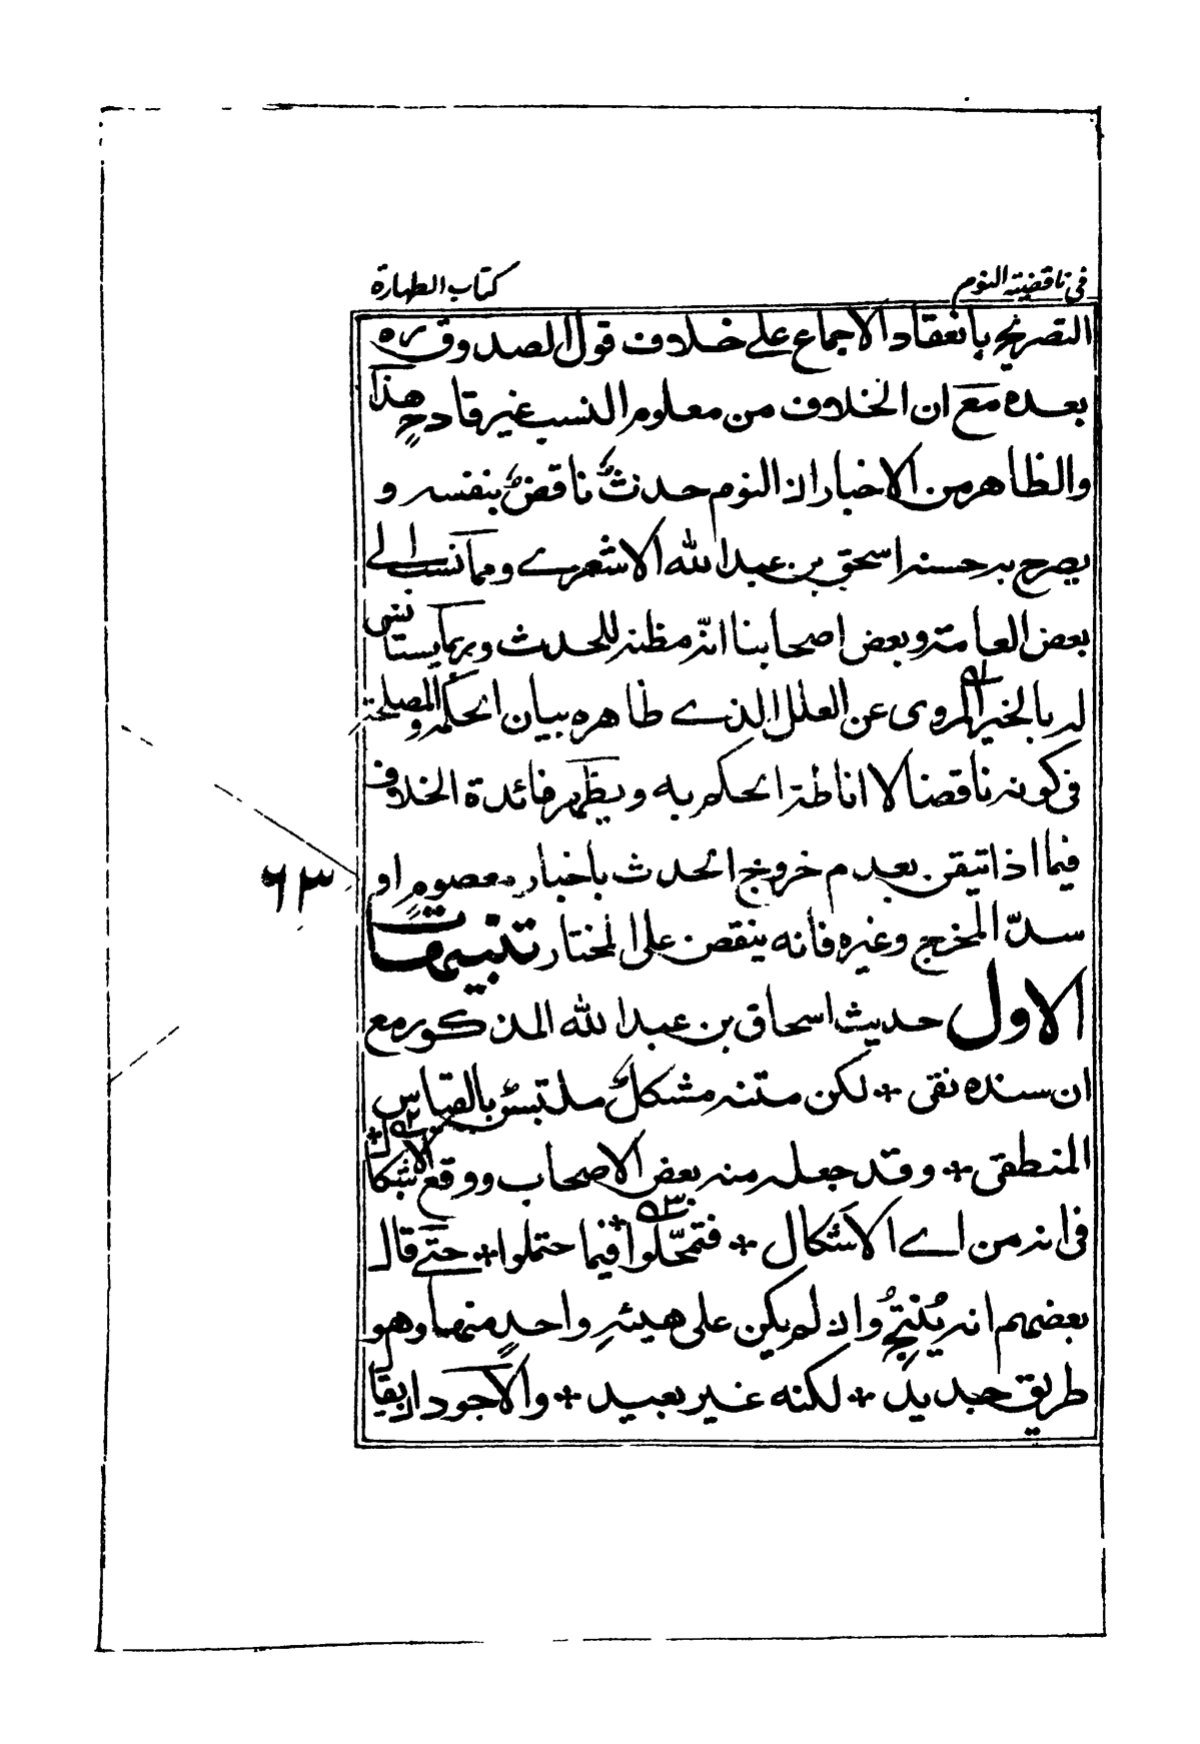 في ناقضية النوم
كتاب الطهارة
التصريح بانعقاد الاجماع على خلاف قول الصدوق ره
بعده مع ان الخلاف من معلوم النسب غير قادحٍ هذا
والظاهر من الاخبار ان النوم حدثٌ ناقضٌ بنفسه و
يصرح به حسنة اسحق بن عبد الله الاشعري ومما نسب الى
بعض العامة وبعض اصحابنا انّه مظنة للحدث وربما يستانس
له بالخبر المروى عن العلل الذي ظاهره بيان الحكمة والمصلحة
في كونه ناقضا لا اناطة الحكم به ويظهر فائدة الخلاف
فيما اذا تيقن بعدم خروج الحدث باخبار معصومٍ او
سدّ المخرج وغيره فانه ينقض على المختار تنبيهات
٦٣
الاول حديث اسحاق بن عبد الله المذكور مع
ان سنده نقى + لكن متنه مشكلٌ ملتبسٌ بالقياس
المنطقى + وقد جعله منه بعض الاصحاب ووقع الاشكال +
في انه من اي الاشكال + فتمحّلوا فيما احتملوا + حتى قال
بعضهم انه يُنتِجُ وان لم يكن على هيئةِ واحدٍ منها وهو
طريق جديد + لكنه غير بعيد + والاجود ان يقا